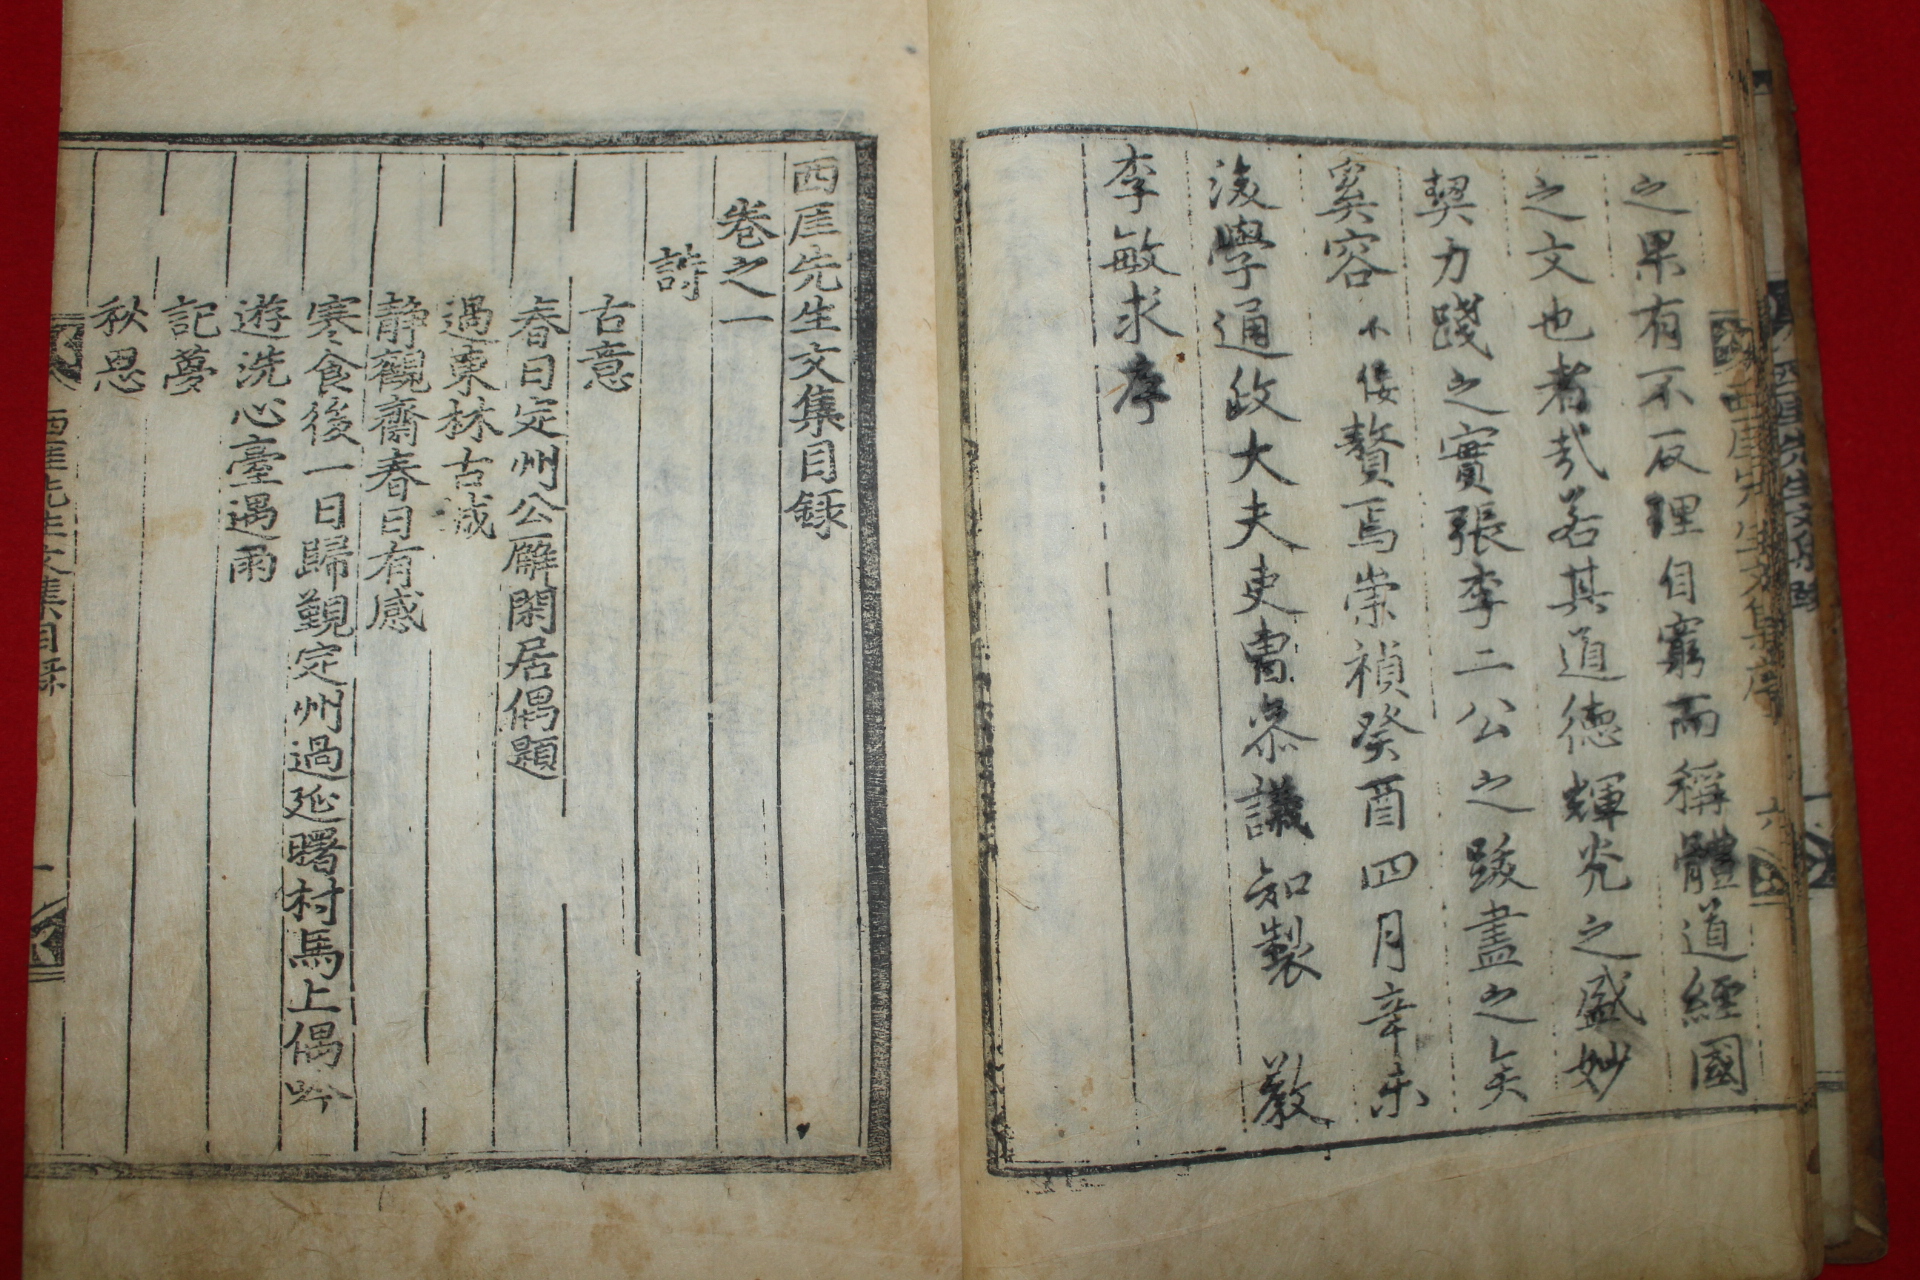 之果有不反理自窮而稱體道經國
之文也者哉若其道德輝光之盛妙
契力踐之實張李二公之跋盡之矣
奚容不佞贅焉崇禎癸酉四月辛未
後學通政大夫吏曹參議知製 敎
李敏求序
西厓先生文集序
六
西厓先生文集目録
卷之一
詩
古意
春日定州公廨閑居偶題
過東林古城
靜觀齋春日有感
寒食後一日歸覲定州過延曙村馬上偶吟
遊洗心臺遇雨
記夢
秋思
西厓先生文集目録
一